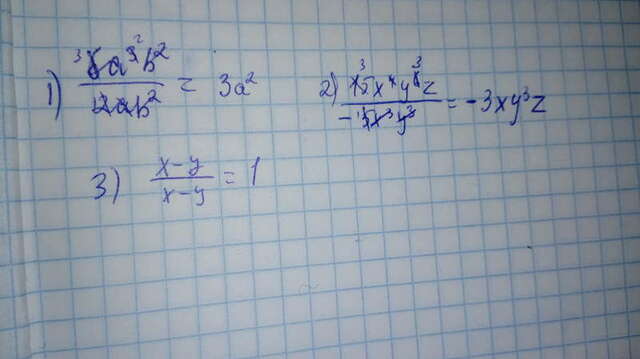 1) 6a³b² / 2ab² = 3a²
2) 15x⁴y⁶z / -5x³y³ = -3xy³z
3) x-y / x-y = 1